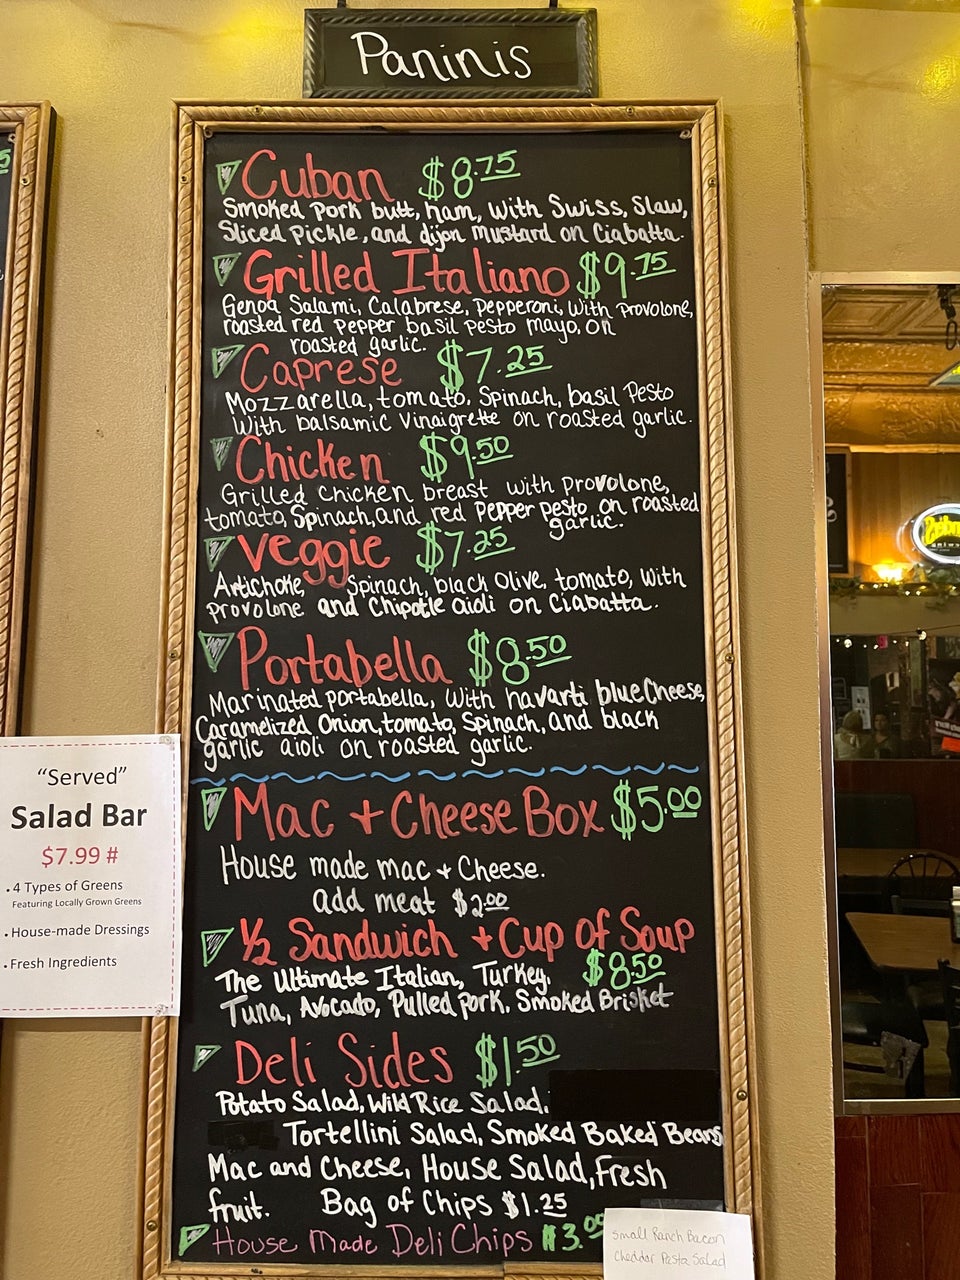 Paninis
Cuban $8.75
Smoked pork butt, ham, with Swiss, Slaw,
Sliced Pickle, and dijon mustard on Ciabatta.
Grilled Italiano $9.75
Genoa Salami, Calabrese, pepperoni, with provolone,
roasted red pepper basil pesto mayo, on
roasted garlic.
Caprese $7.25
Mozzarella, tomato, Spinach, basil Pesto
With balsamic Vinaigrette on roasted garlic.
Chicken $9.50
Grilled Chicken breast with provolone,
tomato, Spinach, and red pepper pesto on roasted
garlic.
Veggie $7.25
Artichoke, Spinach, black Olive, tomato, With
Provolone and Chipotle aioli on Ciabatta.
Portabella $8.50
Marinated portabella, With havarti blue Cheese,
Caramelized Onion, tomato, Spinach, and black
garlic aioli on roasted garlic.
Mac + Cheese Box $5.00
House made mac + Cheese.
add meat $2.00
½ Sandwich + Cup of Soup
$8.50
The Ultimate Italian, Turkey,
Tuna, Avocado, Pulled Pork, Smoked Brisket
Deli Sides $1.50
Potato Salad, Wild Rice Salad,
Tortellini Salad, Smoked Baked Beans
Mac and Cheese, House Salad, Fresh
fruit. Bag of Chips $1.25
House made Deli Chips $3.00
Small Ranch Bacon
Cheddar Pasta Salad
"Served"
Salad Bar
$7.99 #
• 4 Types of Greens
Featuring Locally Grown Greens
• House-made Dressings
• Fresh Ingredients